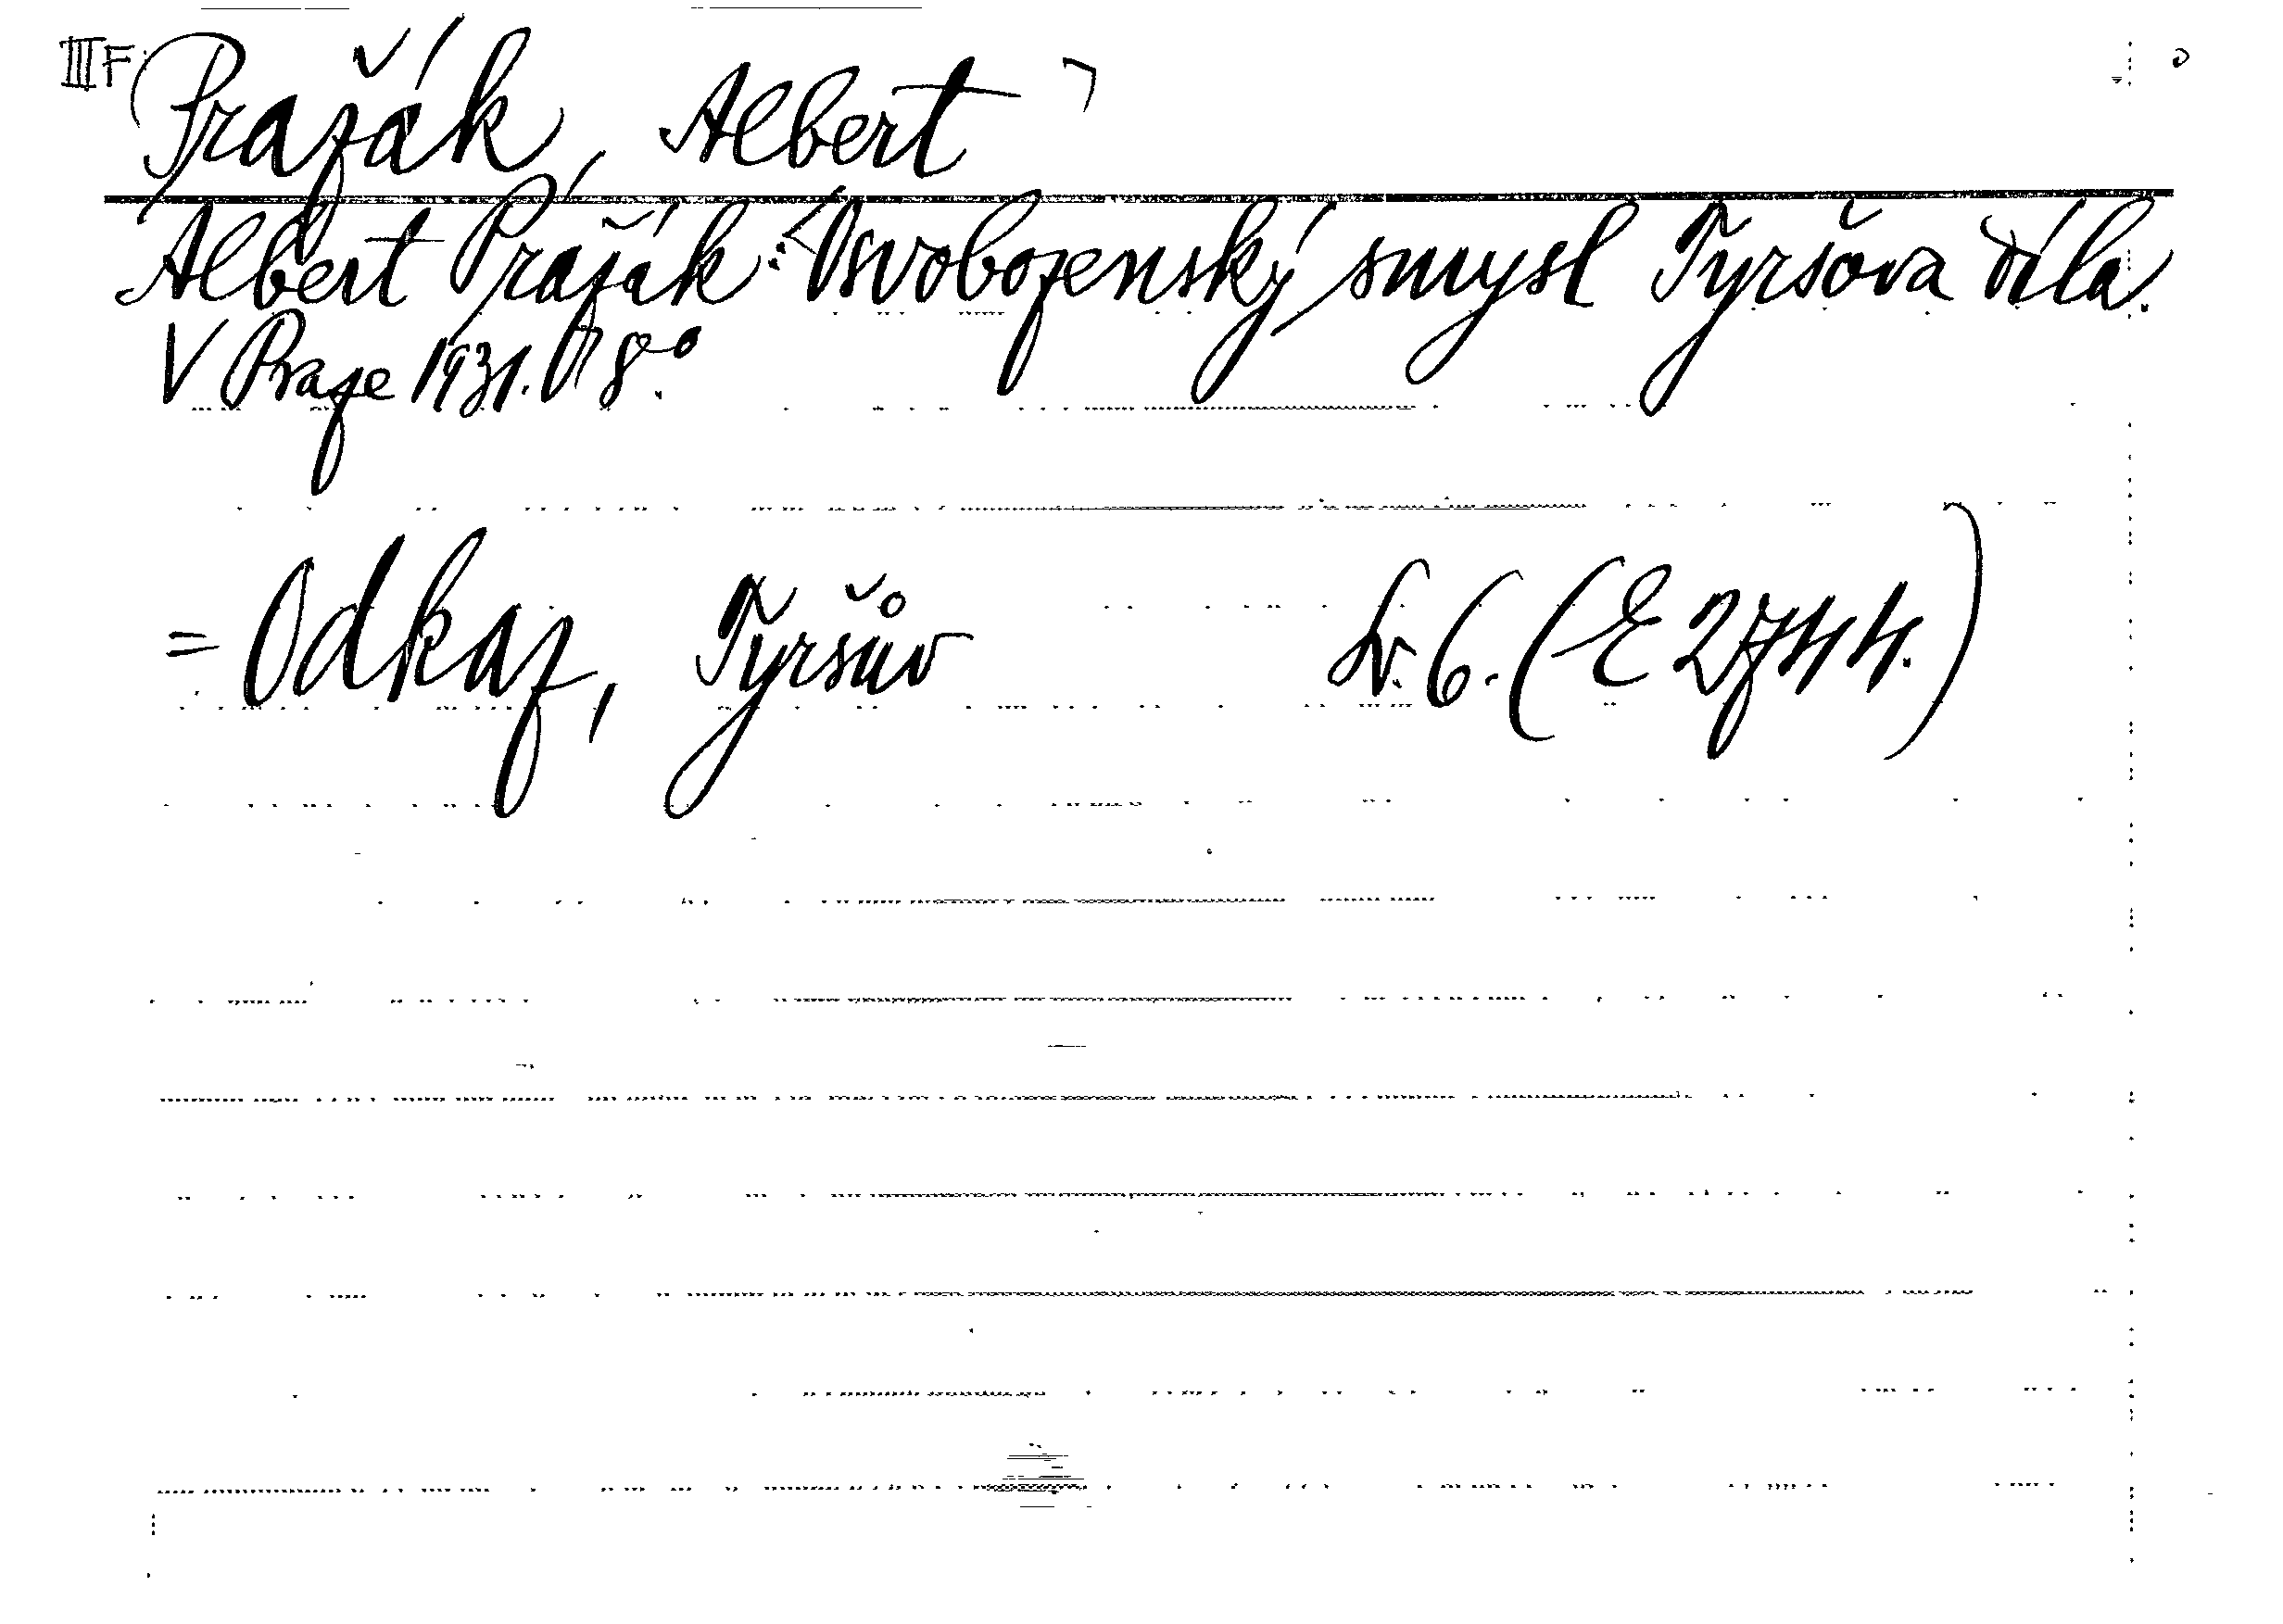 III F Pražák, Albert
Albert Pražák: Osvobozenský smysl Tyršova díla.
V Praze 1931. 8.°
= Odkaz, Tyršův Sv. 6. (E 2744.)